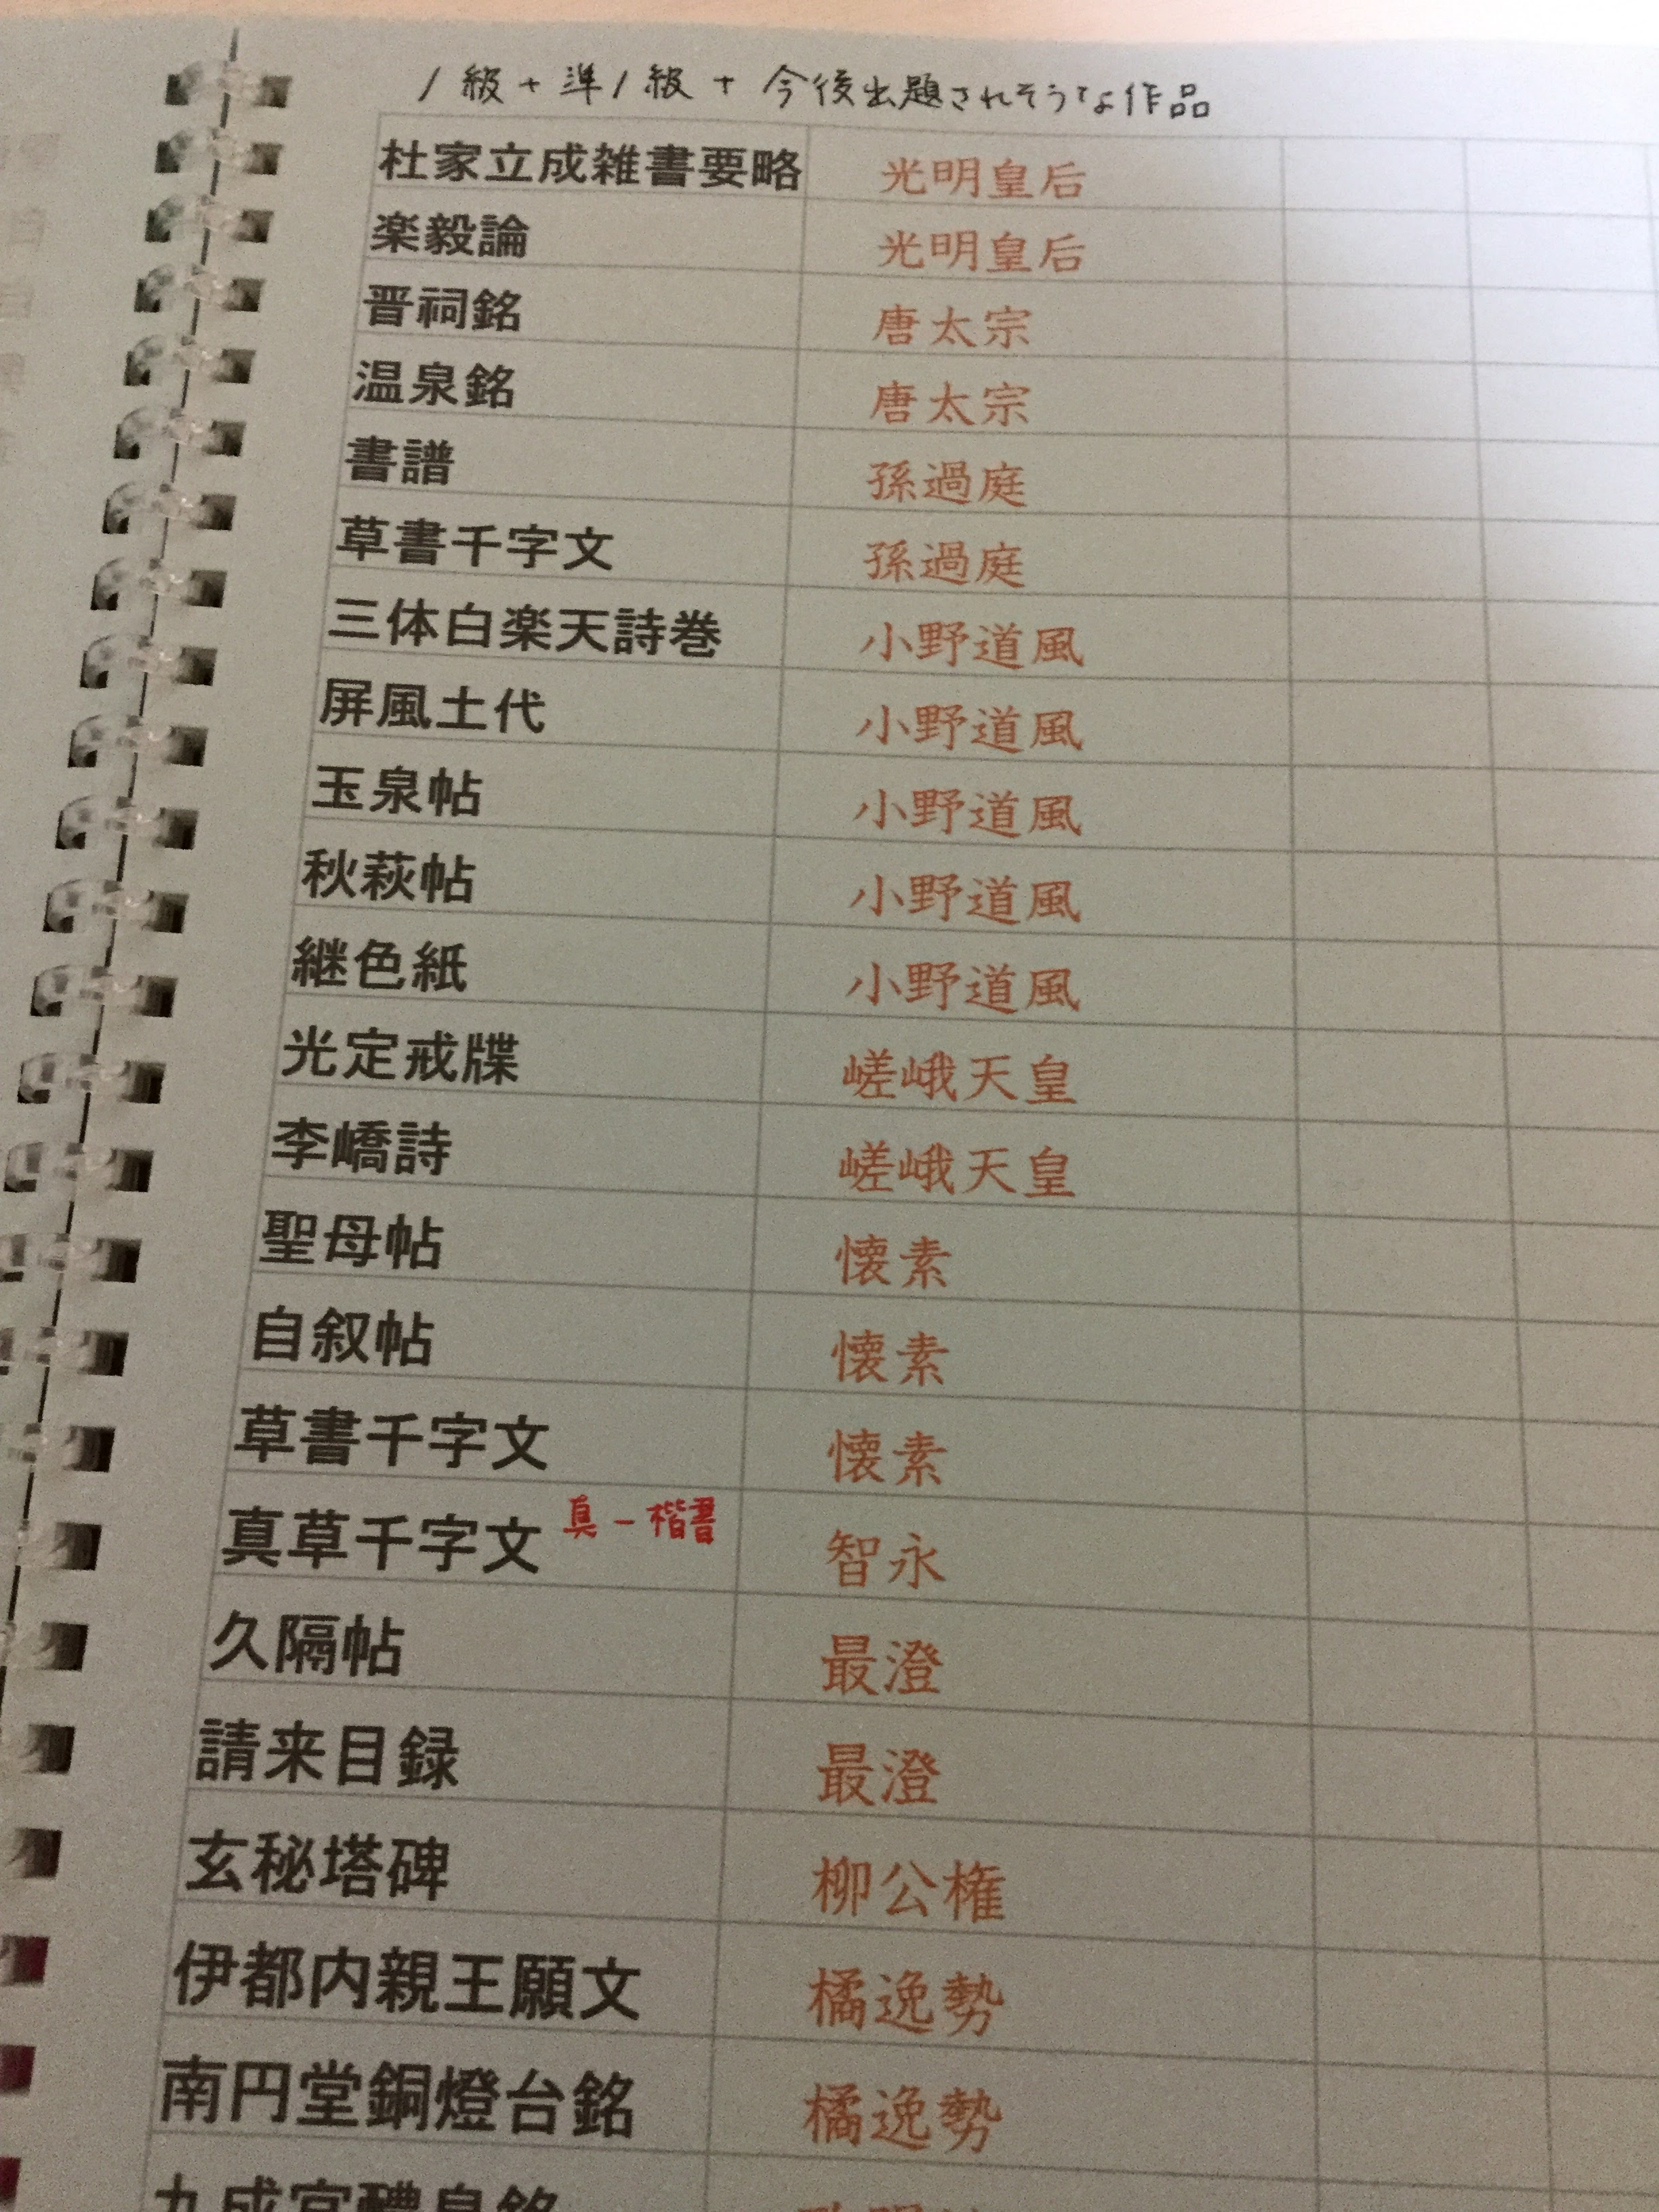 1級+準1級+今後出題されそうな作品
杜家立成雑書要略 光明皇后
楽毅論 光明皇后
晋祠銘 唐太宗
温泉銘 唐太宗
書譜 孫過庭
草書千字文 孫過庭
三体白楽天詩巻 小野道風
屏風土代 小野道風
玉泉帖 小野道風
秋萩帖 小野道風
継色紙 小野道風
光定戒牒 嵯峨天皇
李嶠詩 嵯峨天皇
聖母帖 懐素
自叙帖 懐素
草書千字文 懐素
真草千字文 真-楷書 智永
久隔帖 最澄
請来目録 最澄
玄秘塔碑 柳公権
伊都内親王願文 橘逸勢
南円堂銅燈台銘 橘逸勢
九成宮醴泉銘